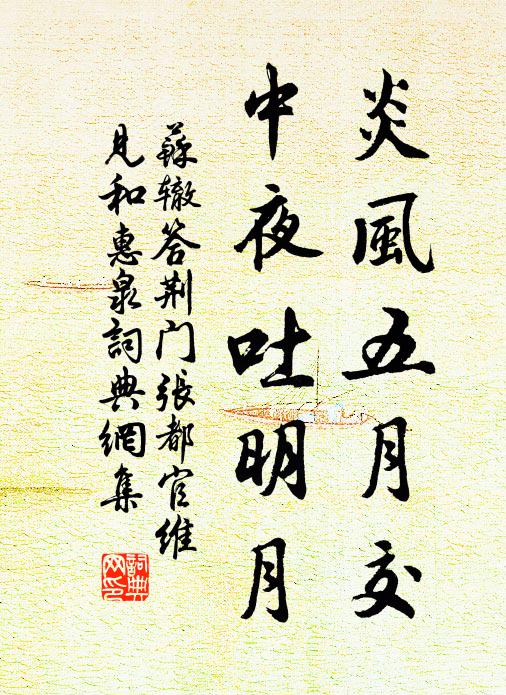 炎風五月交
中夜吐明月
蘇辙答荆门張都官维
見和惠泉詞典網集
詞典网印